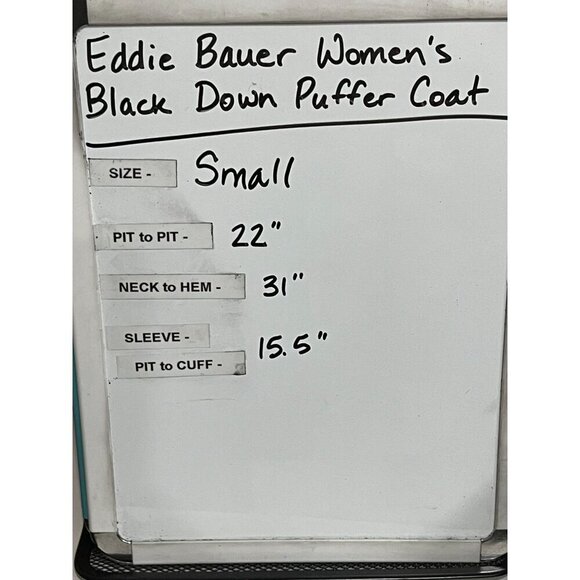 Eddie Bauer Women's
Black Down Puffer Coat
SIZE - Small
PIT to PIT - 22"
NECK to HEM - 31"
SLEEVE -
PIT to CUFF - 15.5"